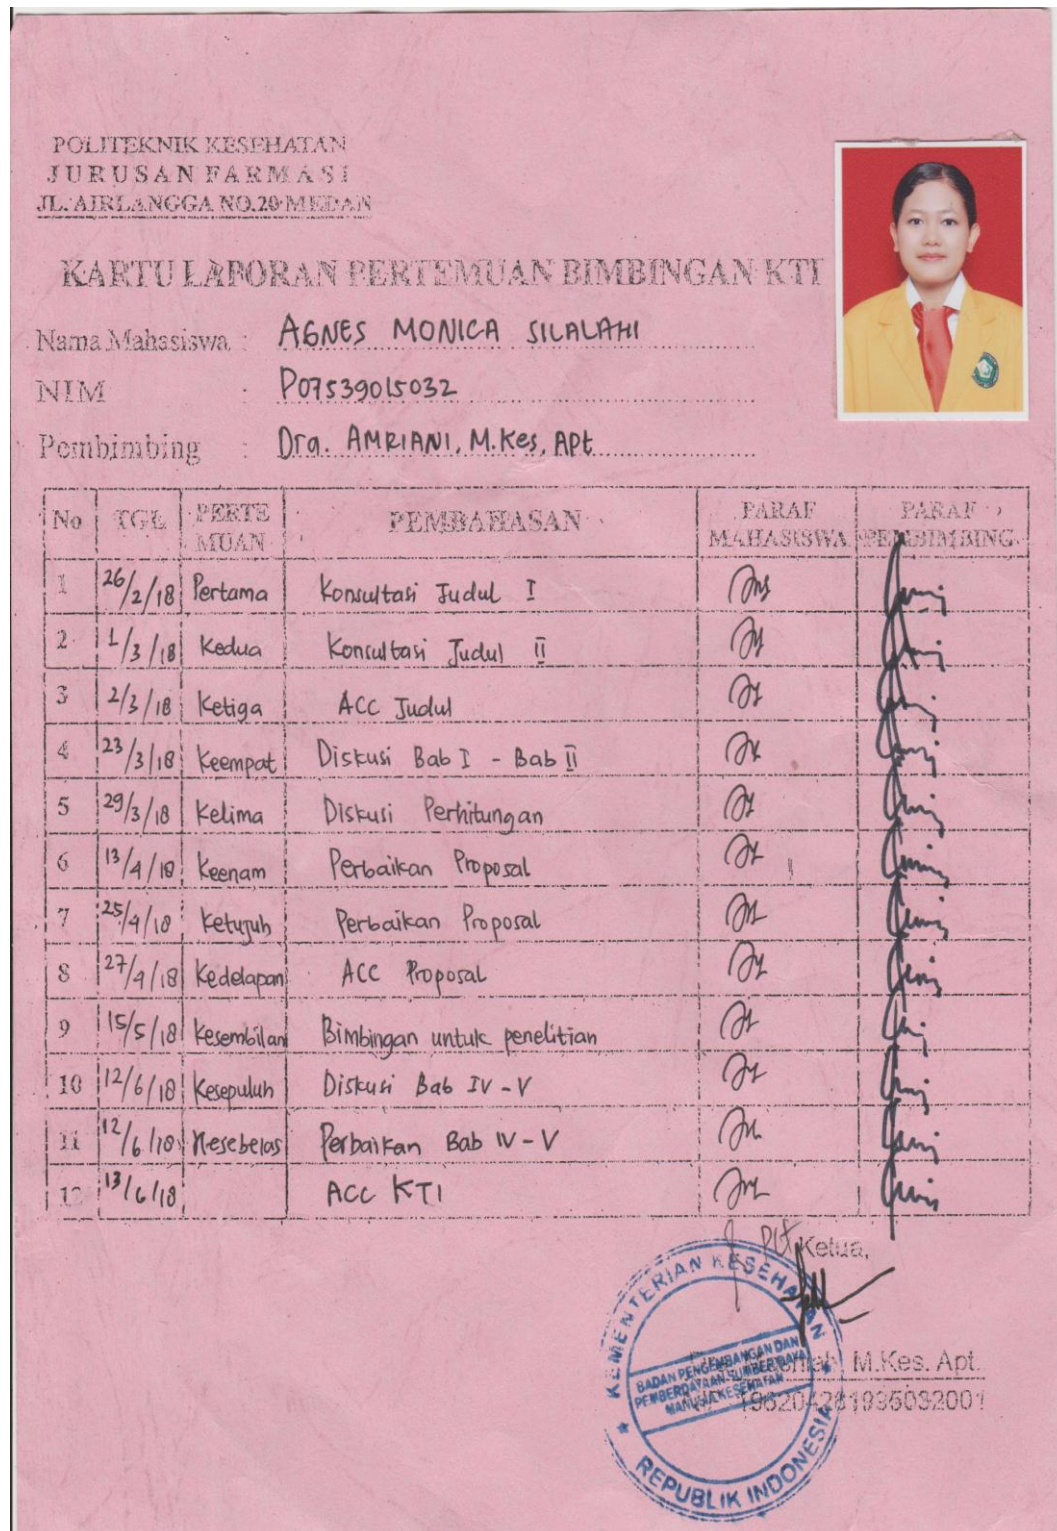 POLITEKNIK KESEHATAN
JURUSAN FARMASI
JL. AIRLANGGA NO.20 MEDAN
KARTU LAPORAN PERTEMUAN BIMBINGAN KTI
Nama Mahasiswa : AGNES MONICA SILALAHI
NIM : P07539015032
Pembimbing : Dra. AMRIANI, M.Kes, Apt
No TGL PERTE MUAN PEMBAHASAN PARAF MAHASISWA PARAF PEMBIMBING
1 26/2/18 Pertama Konsultasi Judul I
2 1/3/18 Kedua Konsultasi Judul II
3 2/3/18 Ketiga ACC Judul
4 23/3/18 Keempat Diskusi Bab I - Bab II
5 29/3/18 Kelima Diskusi Perhitungan
6 13/4/18 Keenam Perbaikan Proposal
7 25/4/18 Ketujuh Perbaikan Proposal
8 27/4/18 Kedelapan ACC Proposal
9 15/5/18 Kesembilan Bimbingan untuk penelitian
10 12/6/18 Kesepuluh Diskusi Bab IV - V
11 12/6/18 Kesebelas Perbaikan Bab IV - V
12 13/6/18 ACC KTI
Plt Ketua,
KEMENTERIAN KESEHATAN
BADAN PENGEMBANGAN DAN
PEMBERDAYAAN SUMBER DAYA
MANUSIA KESEHATAN
REPUBLIK INDONESIA
M.Kes. Apt.
196204281995032001